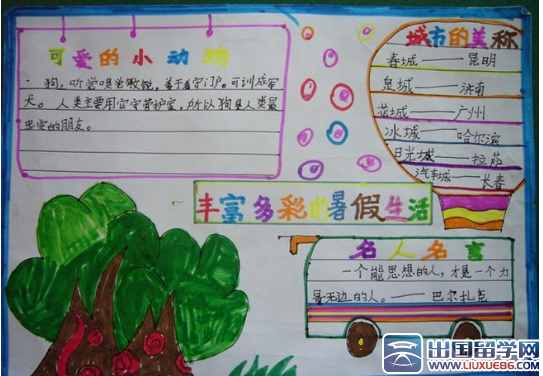 可爱的小动物
狗，听觉嗅觉敏锐，善于看守门户。可训成军
犬。人类主要用它守带护室，所以狗是人类最
忠实的朋友。
城市的美称
春城——昆明
泉城——济南
花城——广州
冰城——哈尔滨
日光城——拉萨
汽车城——长春
丰富多彩的暑假生活
名人名言
一个能思想的人，才是一个力
量无边的人。——巴尔扎克
出国留学网
WWW.LIUXUE86.COM